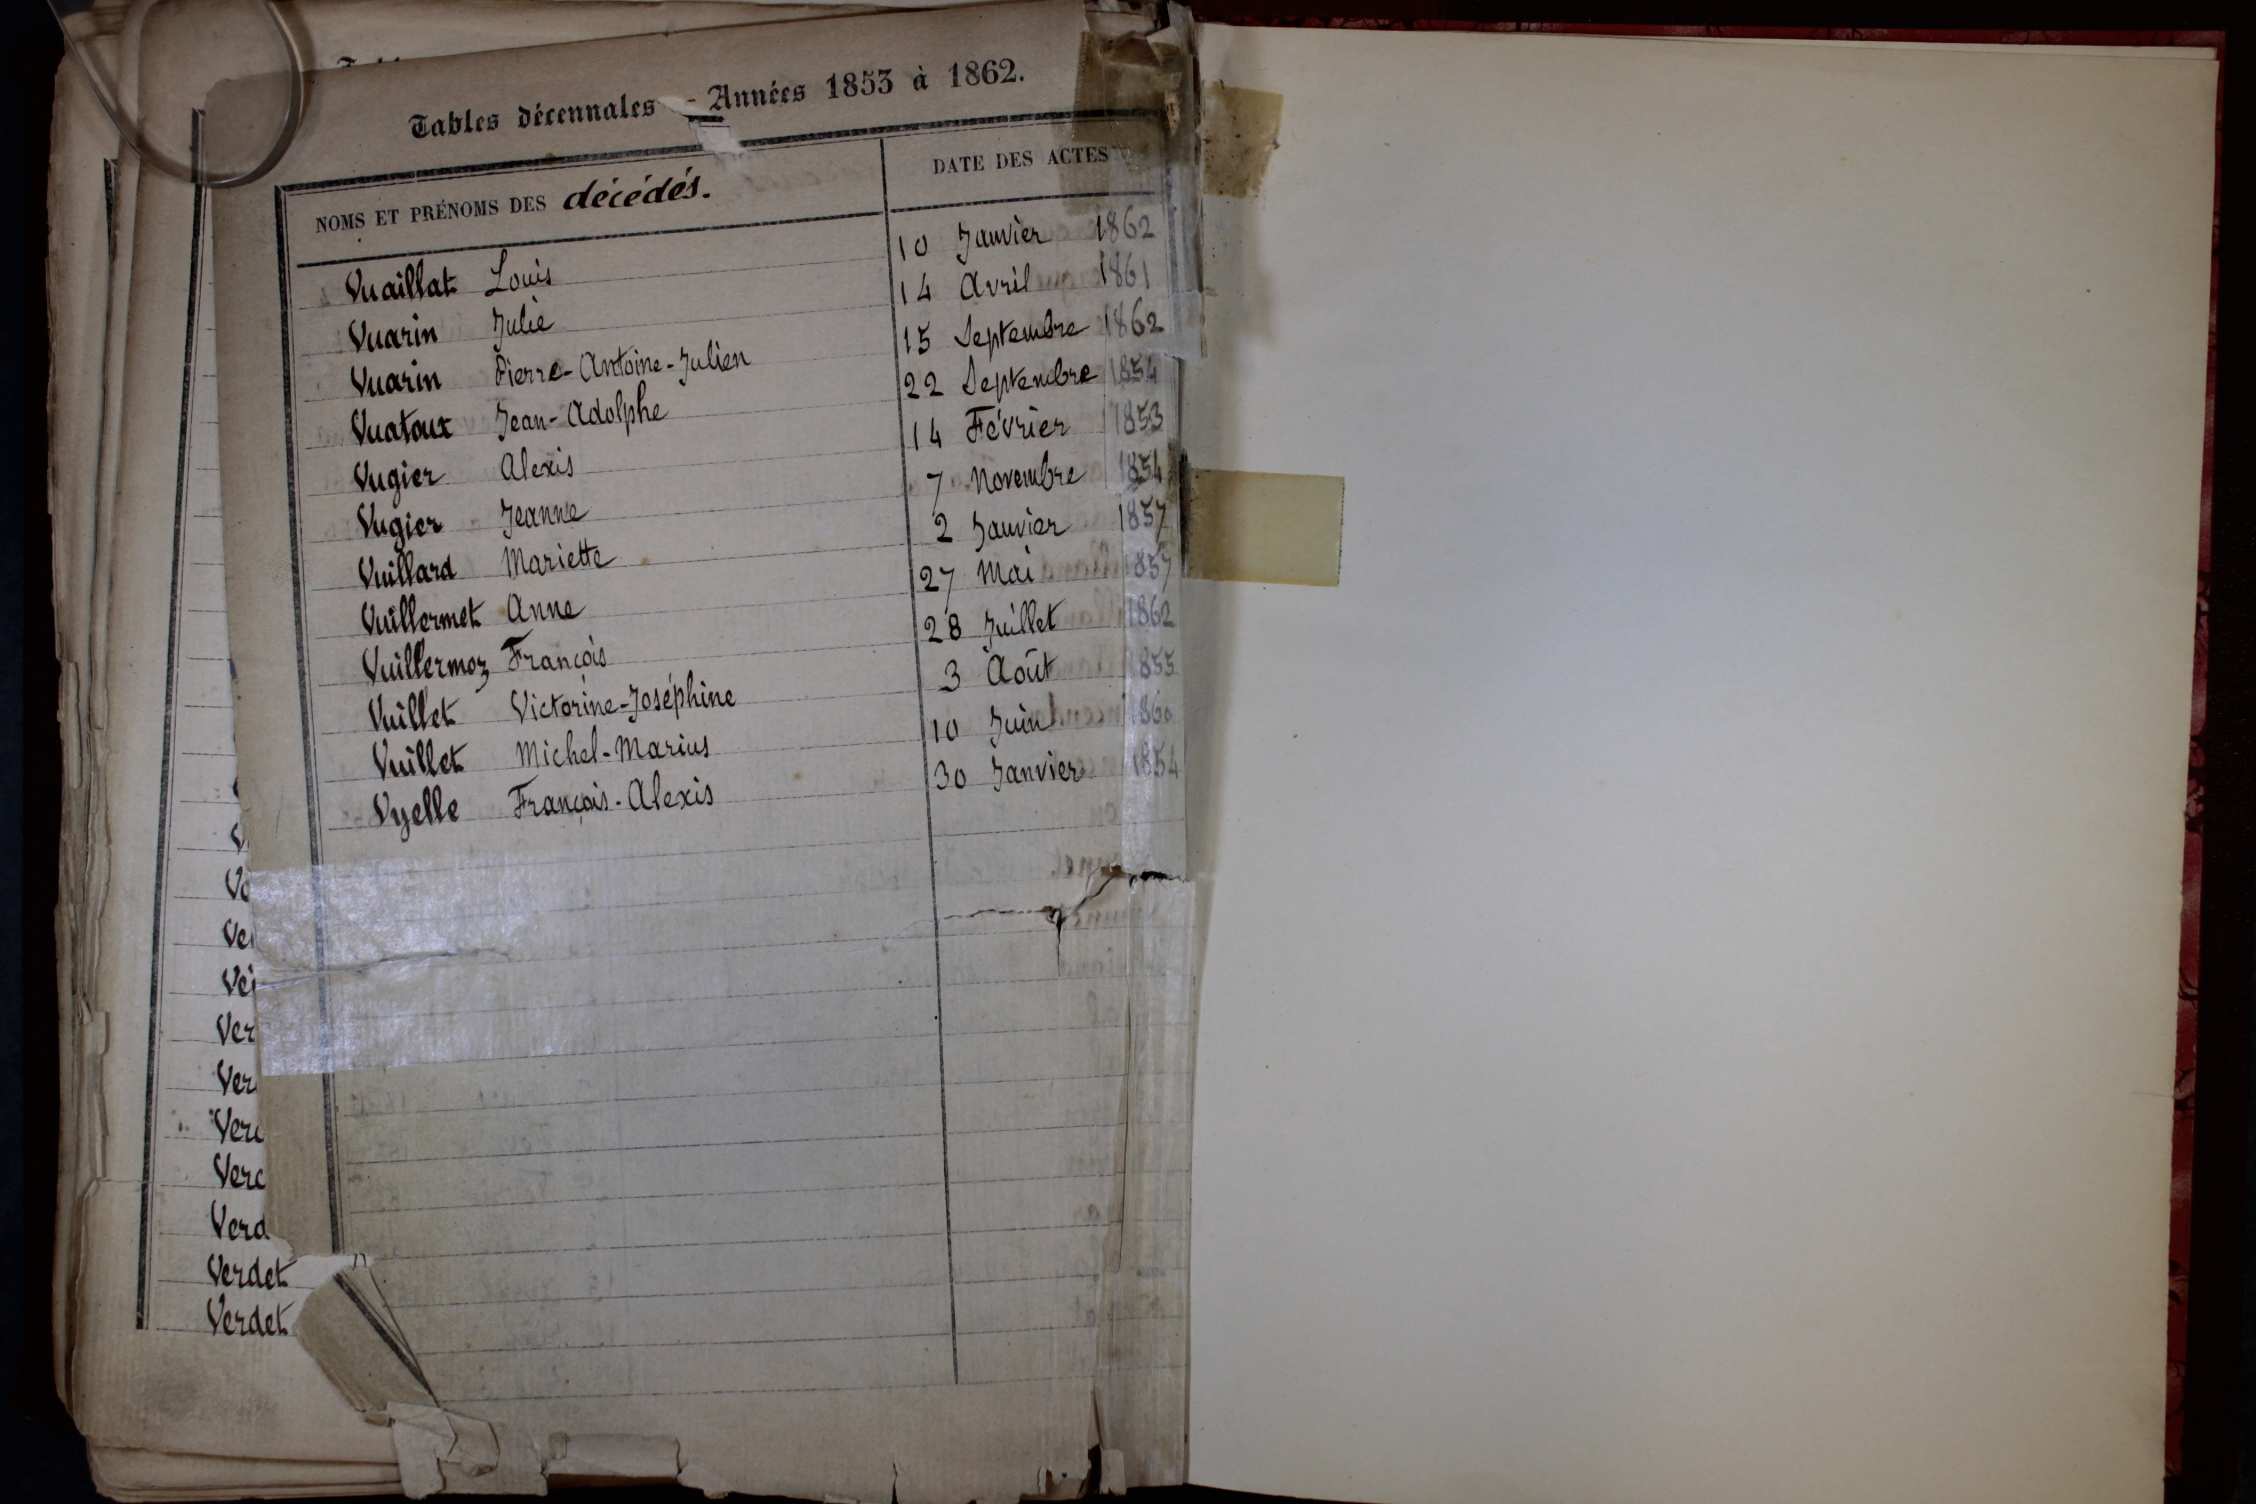 Tables décennales - Années 1853 à 1862.
NOMS ET PRÉNOMS DES décédés. DATE DES ACTES
Vuaillat Louis 10 Janvier 1862
Vuarin Julie 14 Avril 1861
Vuarin Pierre-Antoine-Julien 15 Septembre 1862
Vuatoux Jean-Adolphe 22 Septembre 1854
Vugier Alexis 14 Février 1853
Vugier Jeanne 7 Novembre 1854
Vuillard Mariette 2 Janvier 1857
Vuillermet Anne 27 Mai 1857
Vuillermoz François 28 Juillet 1862
Vuillet Victorine-Joséphine 3 Août 1855
Vuillet Michel-Marius 10 Juin 1860
Vyelle François-Alexis 30 Janvier 1854
Ver
Ver
Verd
Verdet
Verdet